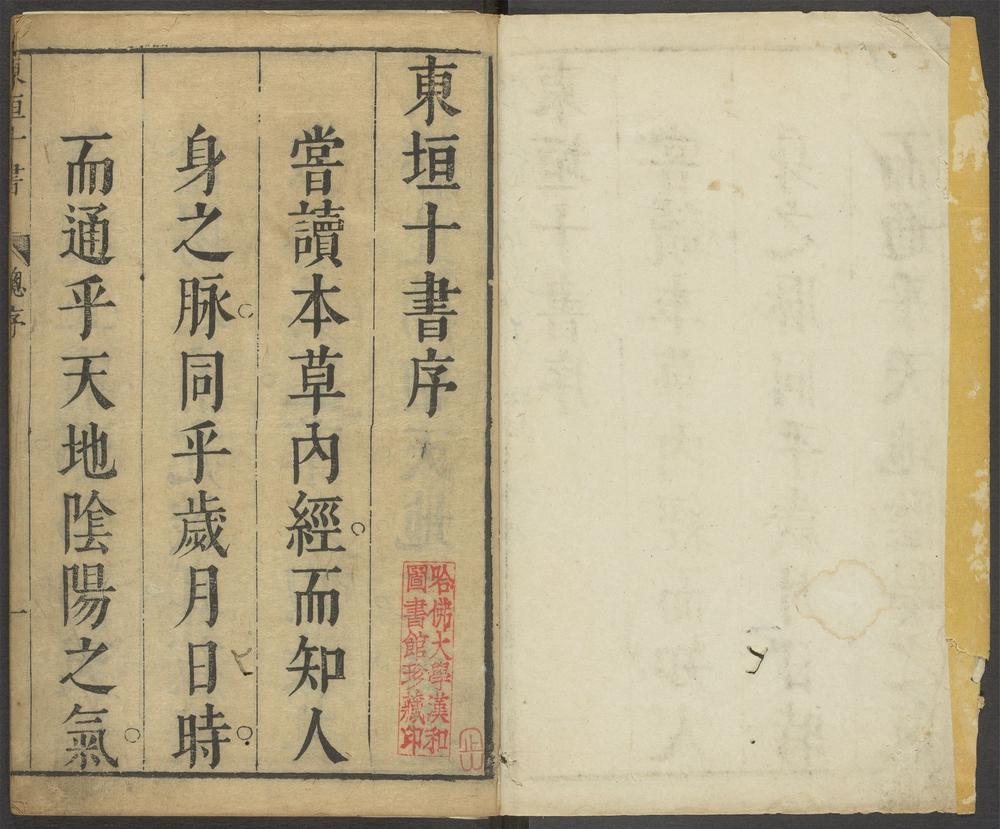 東垣十書序
嘗讀本草內經而知人
身之脉同乎歲月日時
而通乎天地陰陽之氣
東垣十書
總序
一
哈佛大學漢和
圖書館珍藏印